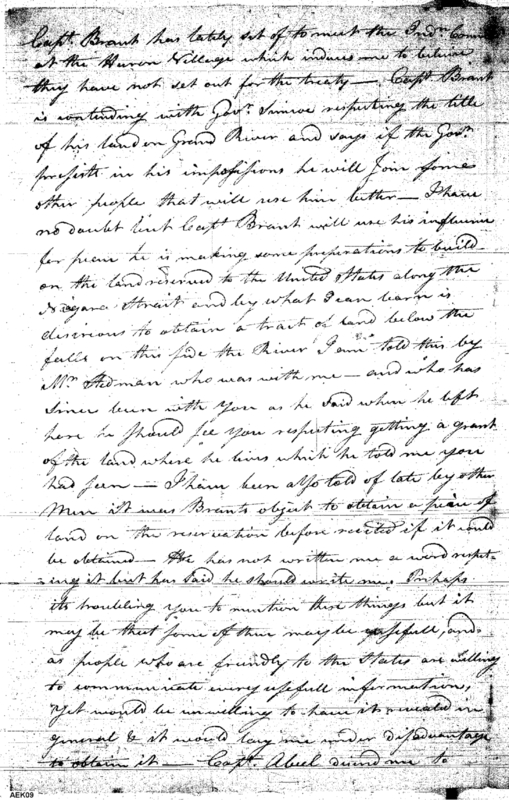 Capt. Brant has lately set of to meet the Indn.
at the Huron Village which induces me to believe
they have not set out for the treaty — Capt. Brant
is contending with Govr. Simcoe respecting the title
of his land on Grand River and says if the Govr.
persists in his impositions he will Join some
other people that will use him better — I have
no doubt but Capt Brant will use his influence
for peace he is making some preparations to build
on the land reserved to the United States along the
Niagara Strait and by what I can learn is
discirious to obtain a tract of land below the
falls on this side the River I am told this by
Mr. Stedman who was with me — and who has
since been with you as he said when he left
here he should see you respecting getting a grant
of the land where he lives which he told me you
had seen — I have been also told of late by other
Men it was Brants object to obtain a piece of
land on the reservation before recited if it could
be obtained — He has not written me a word respet-
ing it but has said he should write me, Perhaps
its troubling you to mention these things but it
may be that some of them may be usefull, and
as people who are friendly to the States are willing
to communicate every usefull information,
yet would be unwilling to have it revealed in
general & it would lay me under disadvantage
to obtain it — Capt. Abeel me to
AEK09